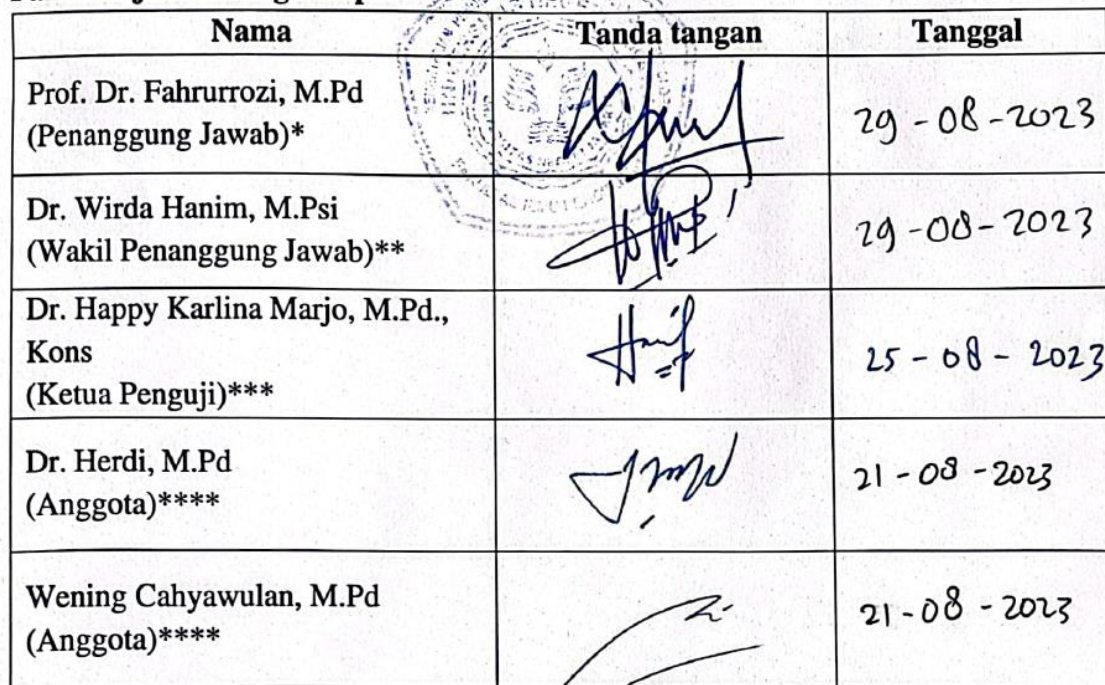 Nama Tanda tangan Tanggal
Prof. Dr. Fahrurrozi, M.Pd
(Penanggung Jawab)* 29 - 08 - 2023
Dr. Wirda Hanim, M.Psi
(Wakil Penanggung Jawab)** 29 - 08 - 2023
Dr. Happy Karlina Marjo, M.Pd.,
Kons
(Ketua Penguji)*** 25 - 08 - 2023
Dr. Herdi, M.Pd
(Anggota)**** 21 - 08 - 2023
Wening Cahyawulan, M.Pd
(Anggota)**** 21 - 08 - 2023